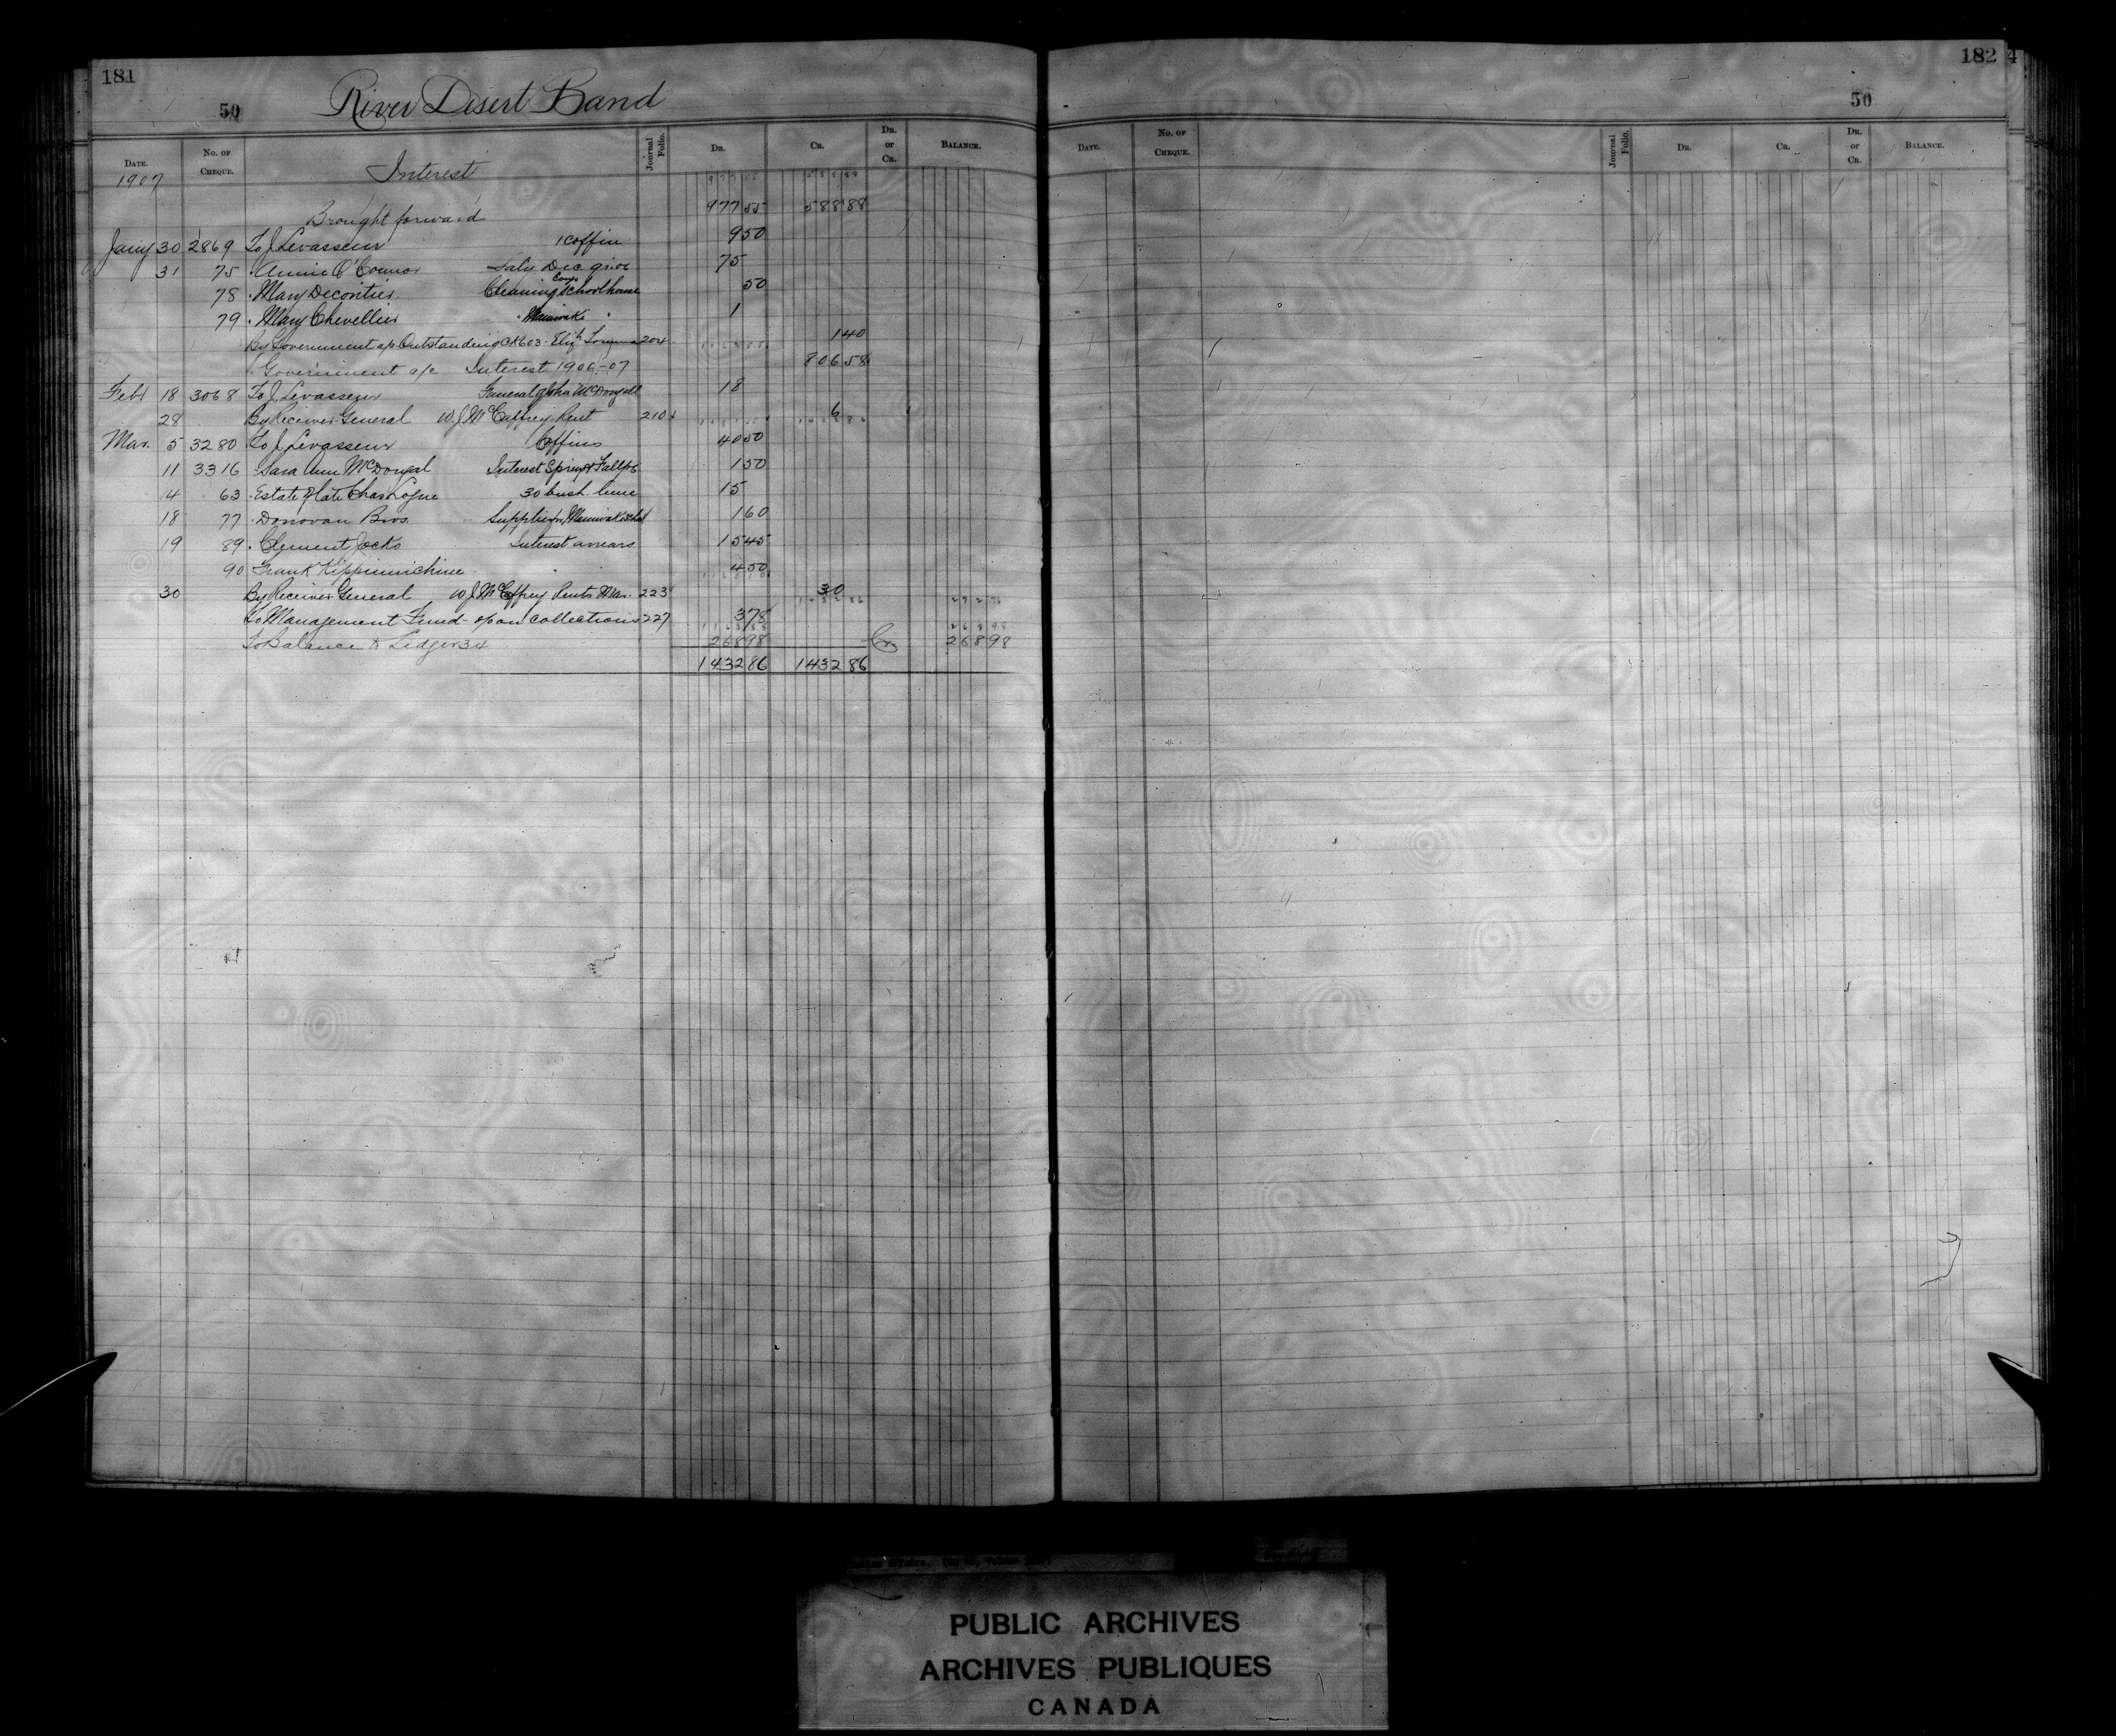 181
50
River Desert Band
DATE. No. OF CHEQUE. Journal Folio. DR. CR. DR. or CR. BALANCE.
1907 Interest
Brought forward 977 55 588 88
Jany 30 2869 To J. Levasseur 1 coffin 9 50
31 75 " Annie O'Connor Saly Dec qr 06 75
78 " Mary Decontie Cleaning Congo Schoolhouse 50
79 " Mary Chevellier " Maniwaki " 1
By Government a/c Outstanding Ck 603 - Elizh 204 1 40
" Government a/c Interest 1906-07 806 58
Feby 18 3068 To J. Levasseur Funeral of John McDougall 18
28 By Receiver General W J McCaffrey Rent 210 6
Mar. 5 3280 To J. Levasseur Coffins 40 50
11 3316 " Sara Ann McDougal Interest Spring & Fall 06 1 50
14 63 " Estate of late Chas Logue 30 bush. lime 15
18 77 " Donovan Bros. Supplies for Maniwaki Schol 1 60
19 89 " Clement Jocko Interest arrears 15 45
90 Frank Kippimichine " " 4 50
30 By Receiver General W J McCaffrey Rents Mar. 223 30
To Management Fund - 6% on collections 227 3 78
To Balance to Ledger 34 268 98 Cr 268 98
1432 86 1432 86
182
50
DATE. No. OF CHEQUE. Journal Folio. DR. CR. DR. or CR. BALANCE.
PUBLIC ARCHIVES
ARCHIVES PUBLIQUES
CANADA